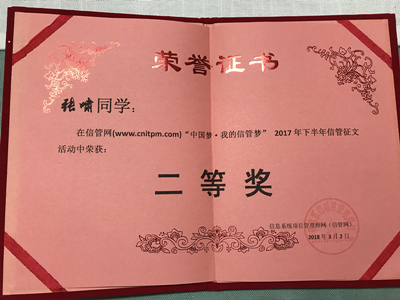 荣誉证书
张啸同学:
在信管网(www.cnitpm.com)“中国梦·我的信管梦” 2017 年下半年信管征文
活动中荣获:
二等奖
信息系统项目管理师网(信管网)
2018 年 3 月 2 日